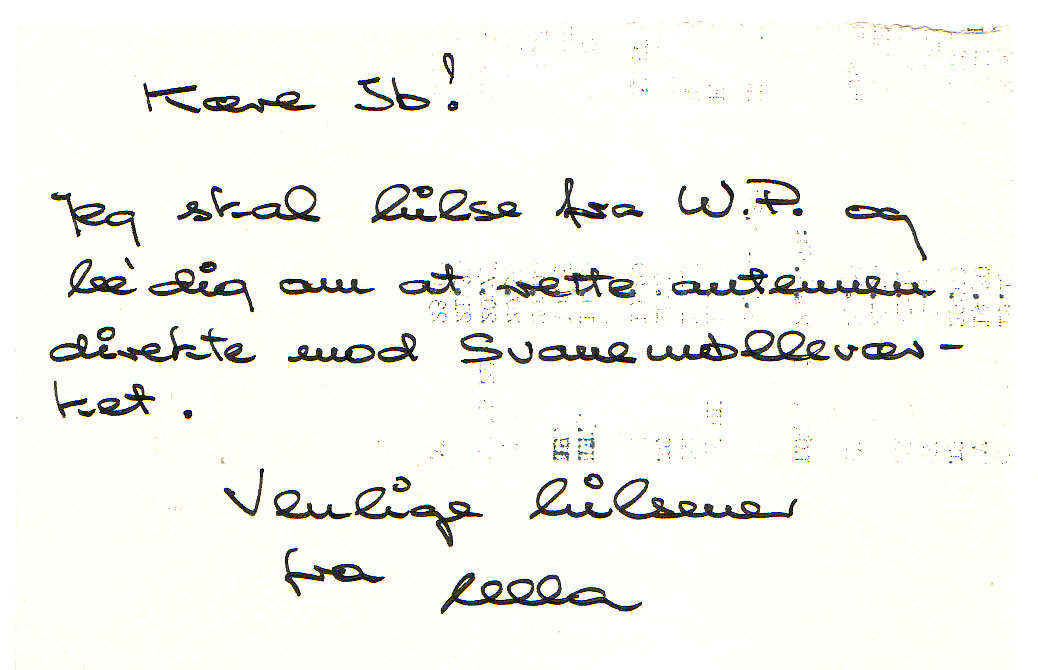 Kære Ib!
Jeg skal hilse fra W.P. og
bé dig om at rette antennen
direkte mod Svanemøllevær-
ket.
Venlige hilsener
fra